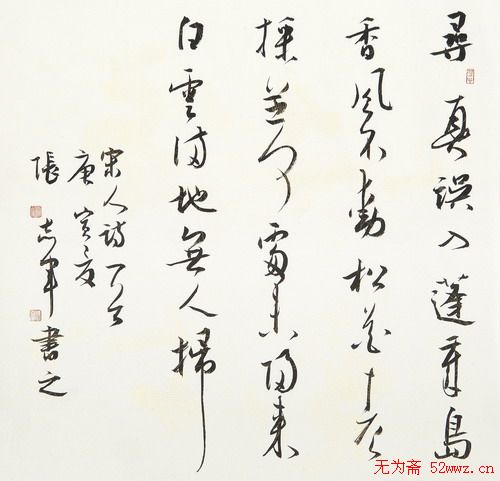 尋真誤入蓬萊島
香風不動松花老
採芝何處未歸來
白雲满地無人掃
宋人詩一首
庚寅夏
張志軍書之
无为斋 52wwz.cn